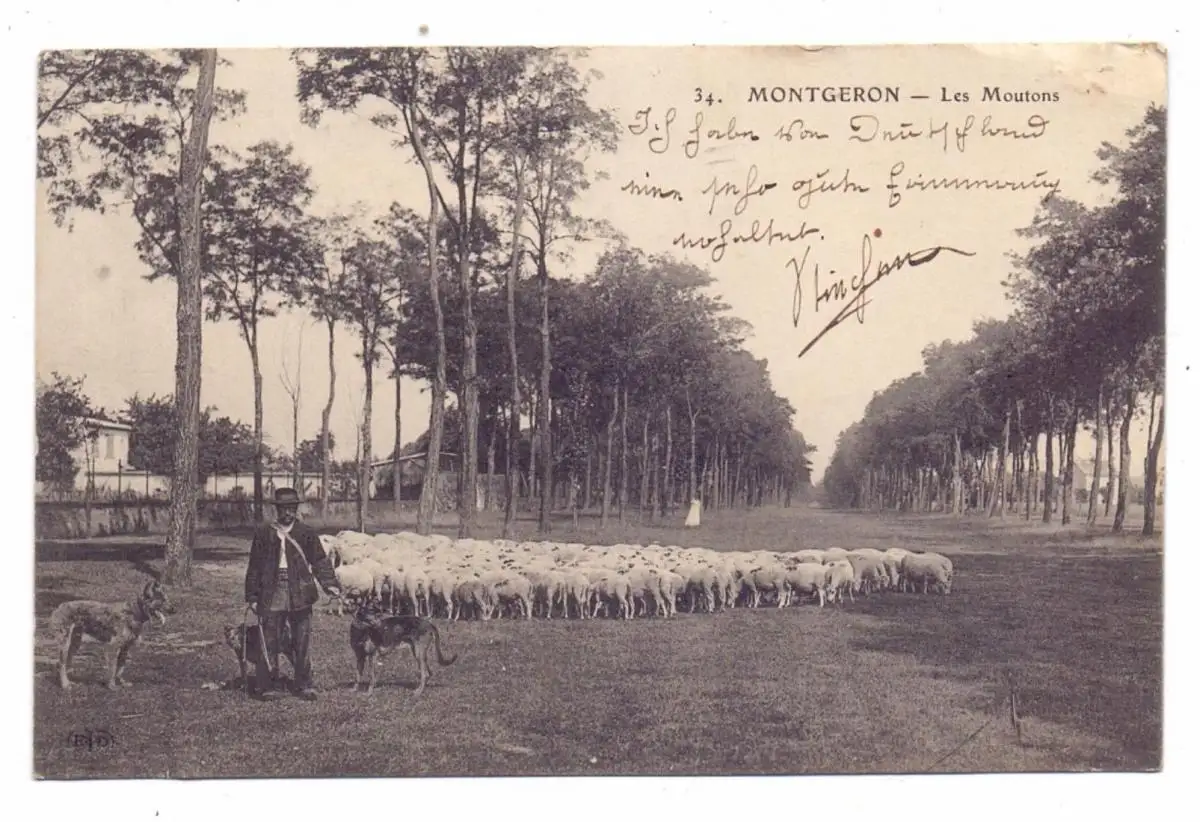 34. MONTGERON — Les Moutons
Ich habe von Deutschland
eine sehr gute Erinnerung
behaltet.
(ELD)